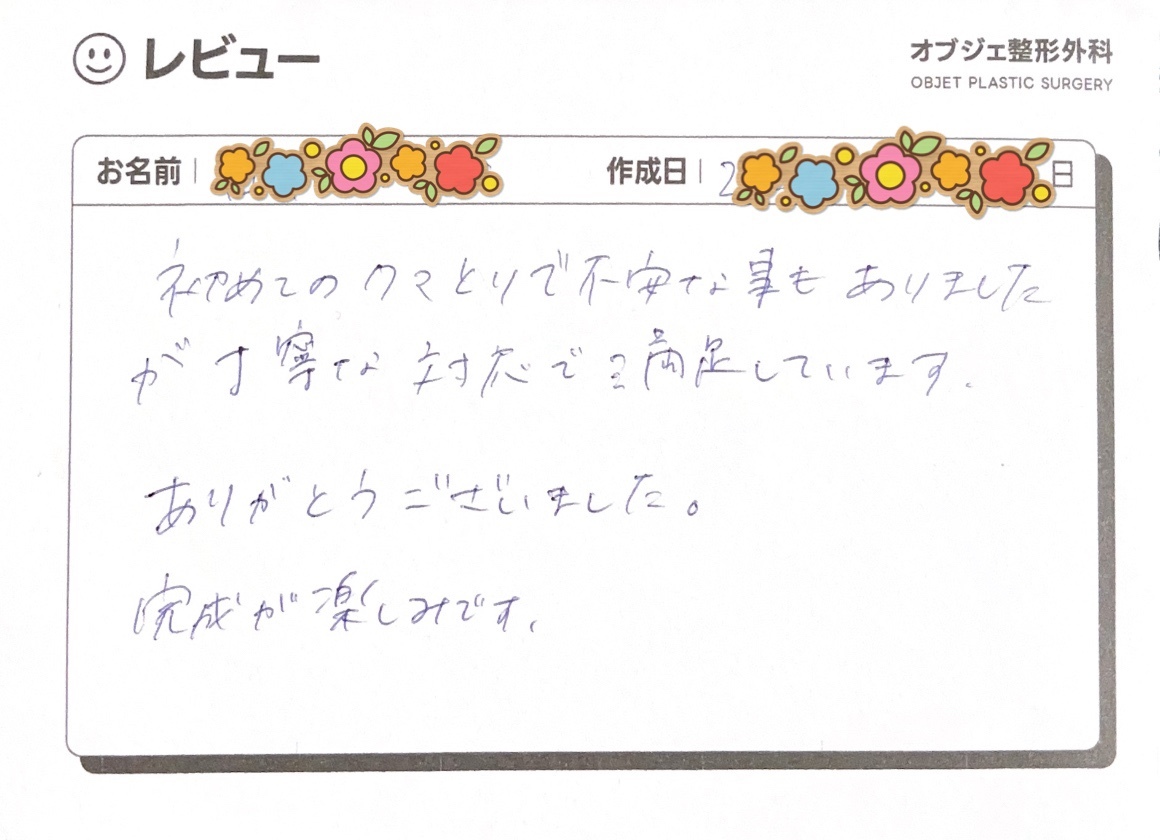 レビュー
オブジェ整形外科
OBJET PLASTIC SURGERY
お名前
作成日 2 日
初めてのクマとりで不安な事もありました
が丁寧な対応で満足しています.
ありがとうございました。
完成が楽しみです.